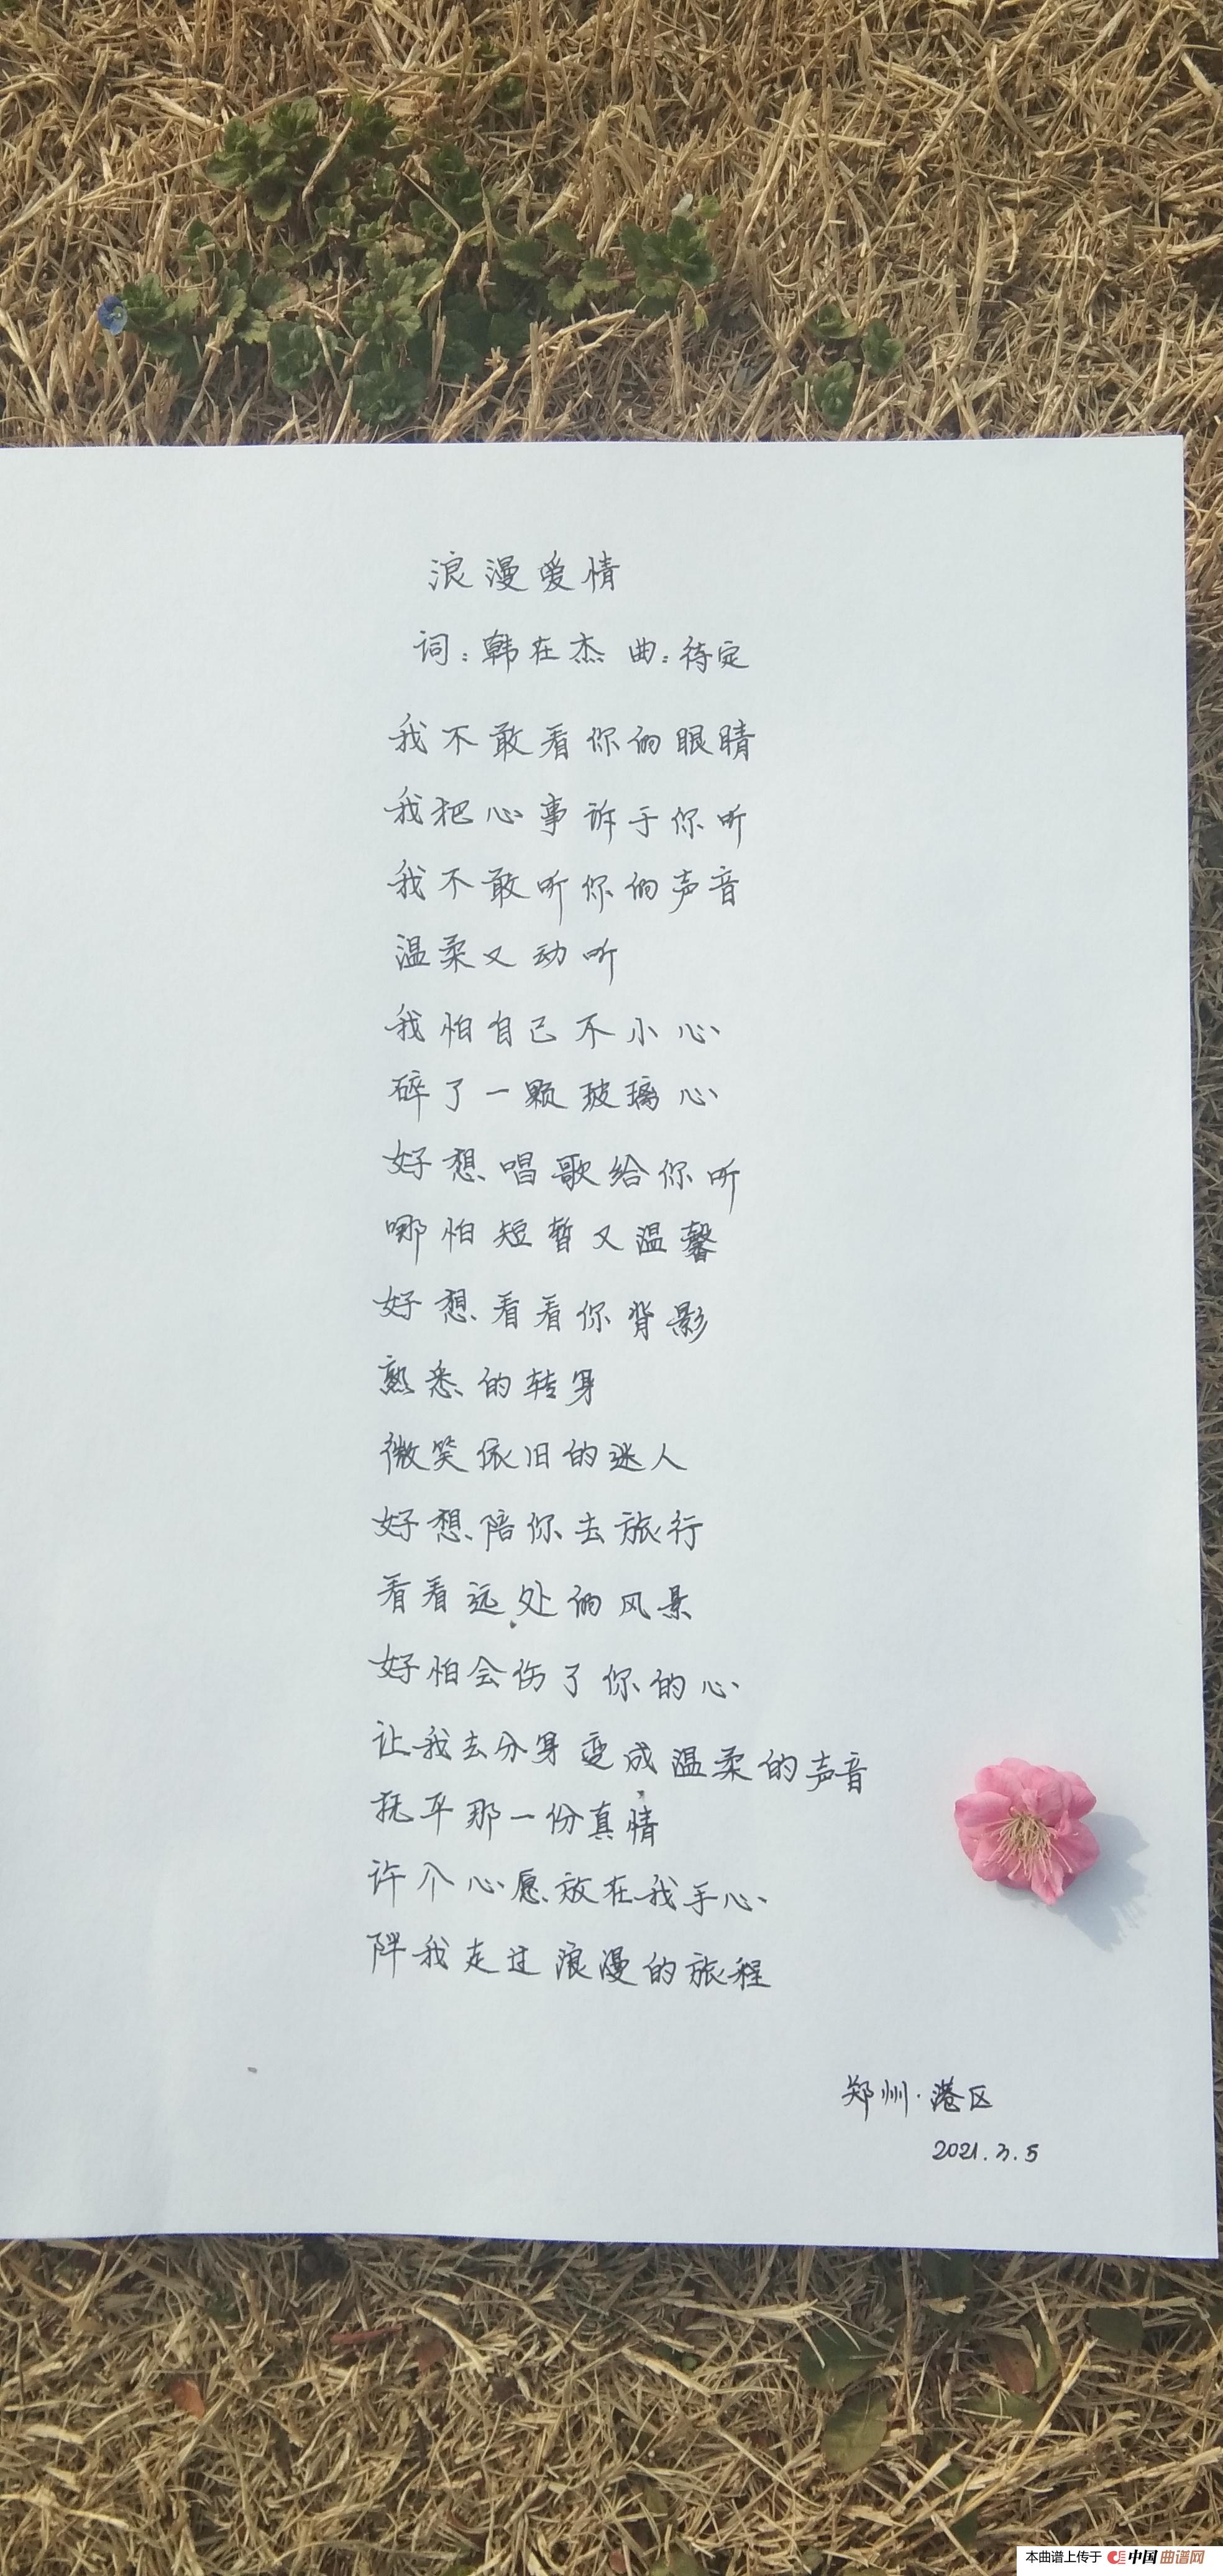 浪漫爱情
词:韩在杰 曲:待定
我不敢看你的眼睛
我把心事诉于你听
我不敢听你的声音
温柔又动听
我怕自己不小心
碎了一颗玻璃心
好想唱歌给你听
哪怕短暂又温馨
好想看看你背影
熟悉的转身
微笑依旧的迷人
好想陪你去旅行
看看远处的风景
好怕会伤了你的心
让我去分身变成温柔的声音
抚平那一份真情
许个心愿放在我手心
陪我走过浪漫的旅程
郑州·港区
2021.3.5
本曲谱上传于 中国曲谱网